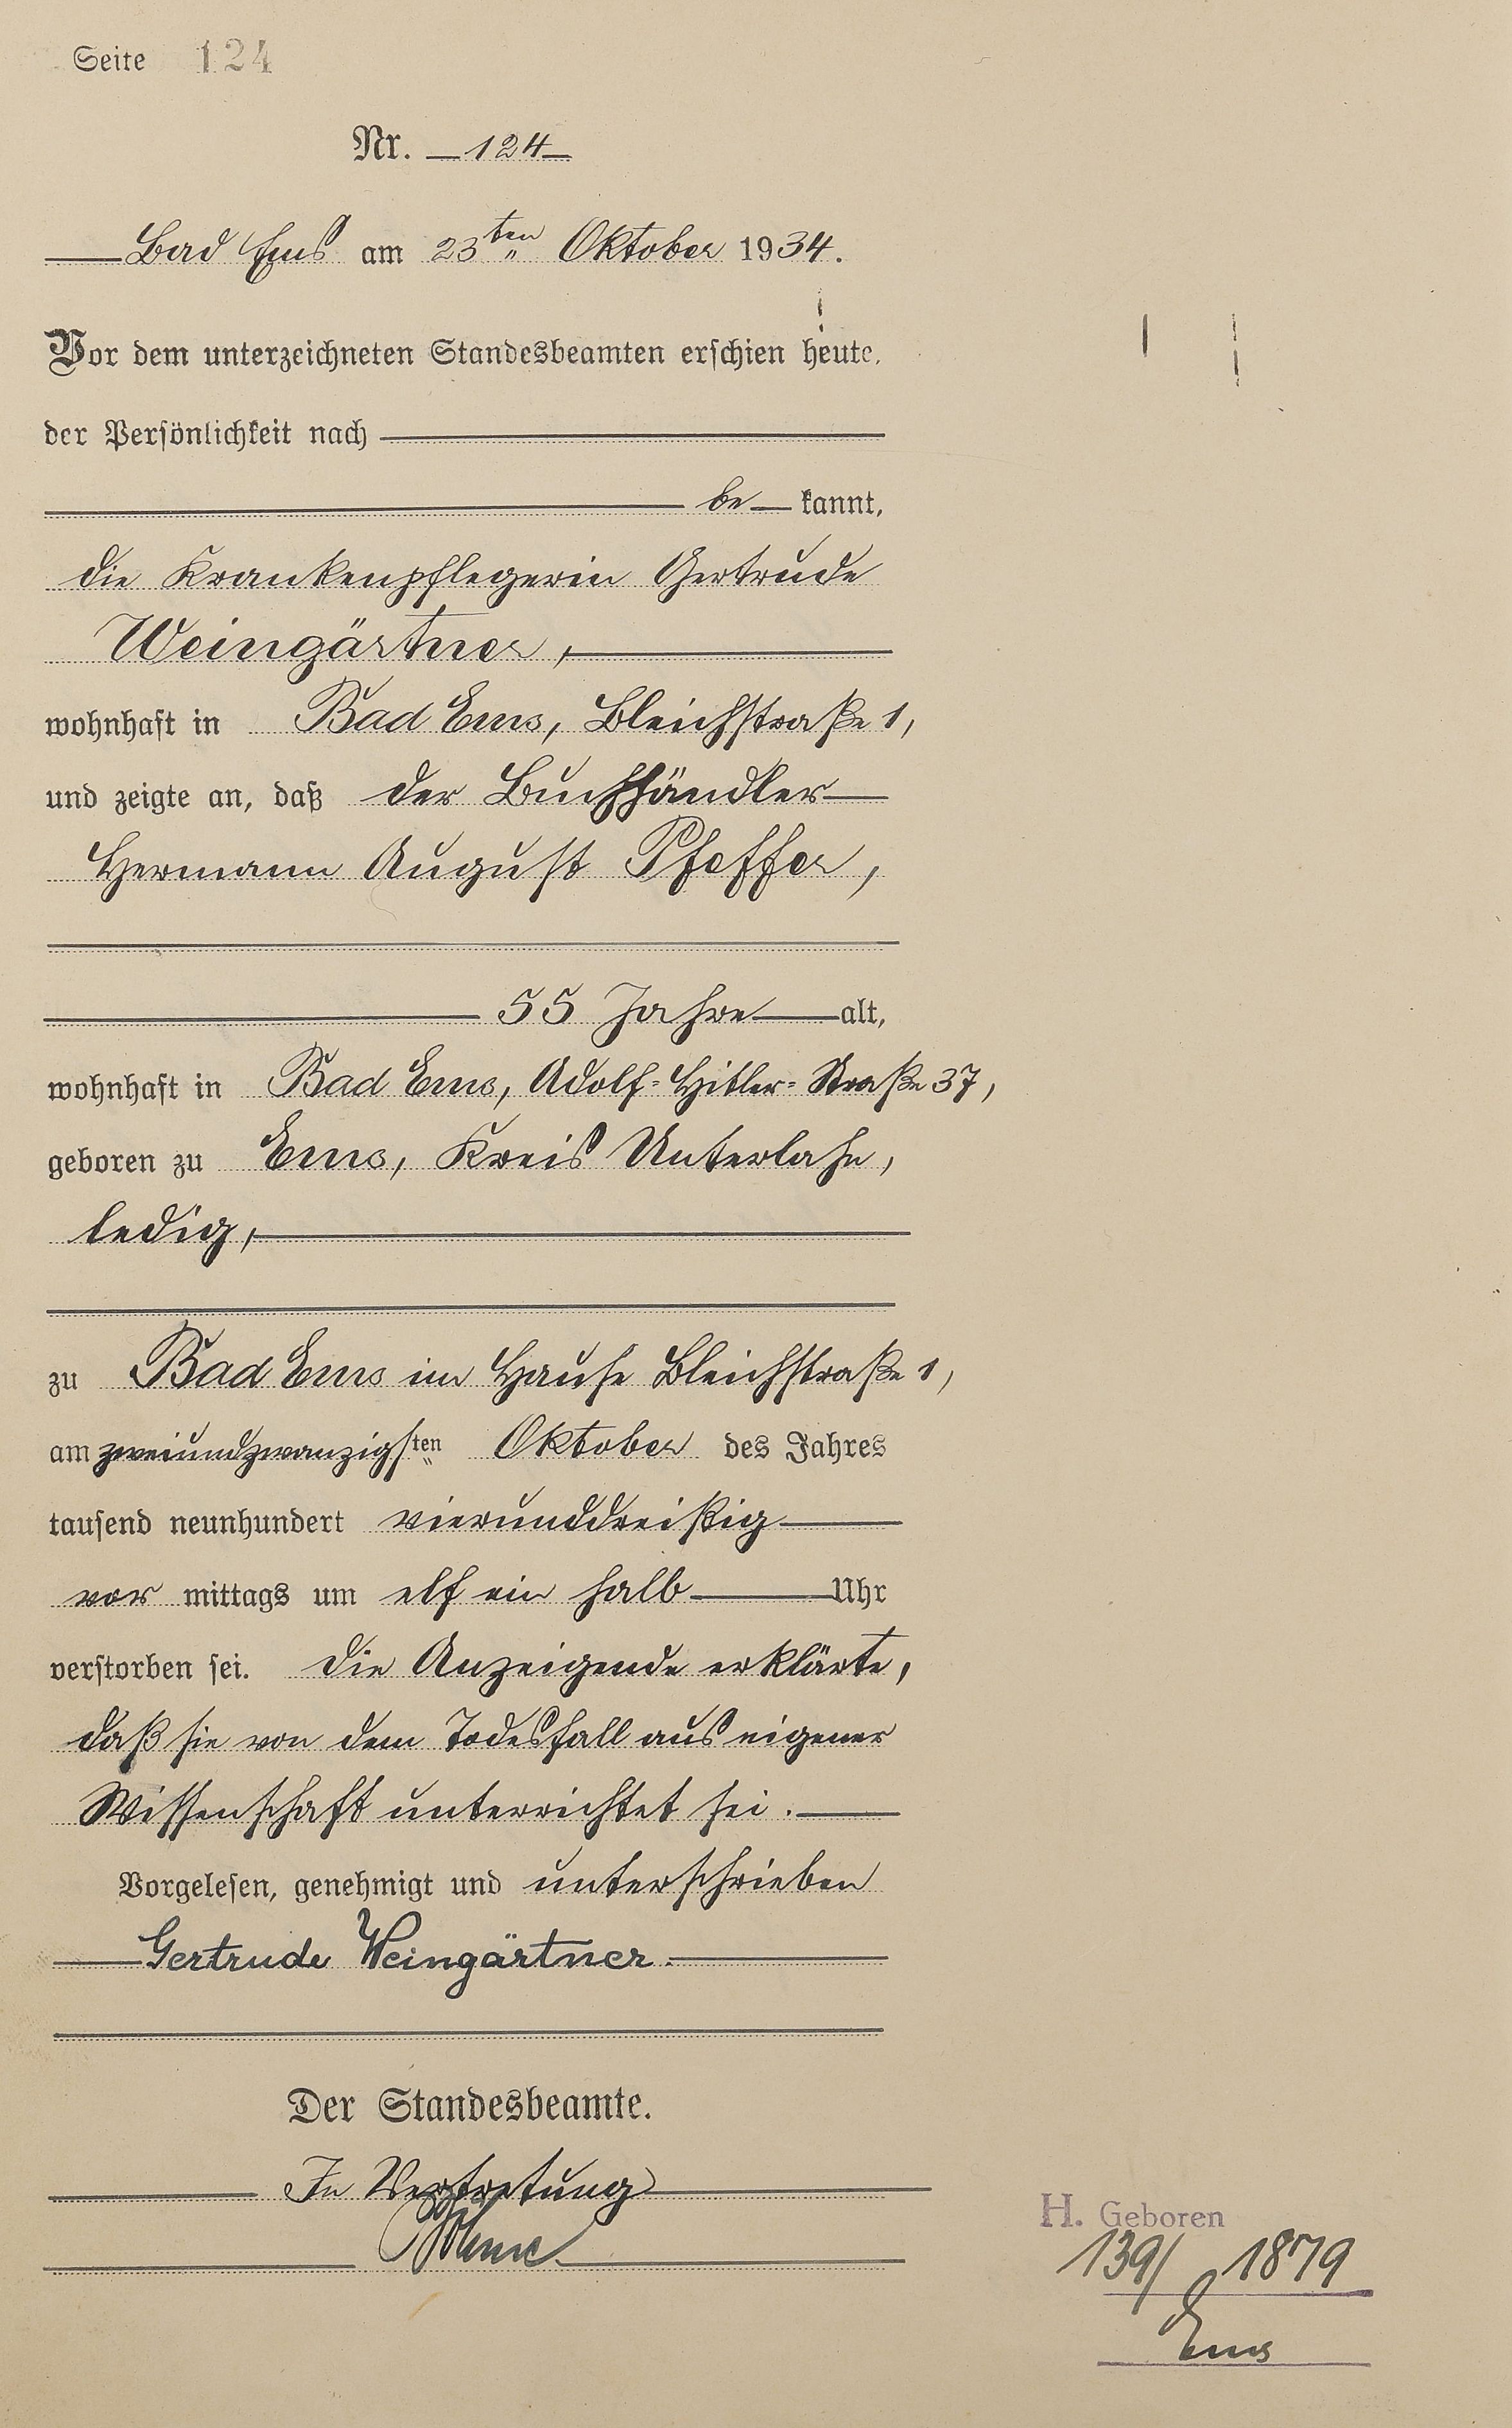 Seite 124
Nr. 124
Bad Ems am 23ten Oktober 1934.
Vor dem unterzeichneten Standesbeamten erschien heute,
der Persönlichkeit nach
be kannt,
die Krankenpflegerin Gertrude
Weingärtner,
wohnhaft in Bad Ems, Bleichstraße 1,
und zeigte an, daß der Buchhändler
Hermann August Pfeffer,
55 Jahre alt,
wohnhaft in Bad Ems, Adolf-Hitler-Straße 37,
geboren zu Ems, Kreis Unterlahn,
ledig,
zu Bad Ems im Hause Bleichstraße 1,
am zweiundzwanzigsten Oktober des Jahres
tausend neunhundert vierunddreißig
vor mittags um elf ein halb Uhr
verstorben sei. Die Anzeigende erklärte,
daß sie von dem Todesfall aus eigener
Wissenschaft unterrichtet sei.
Vorgelesen, genehmigt und unterschrieben
Gertrude Weingärtner.
Der Standesbeamte.
In Vertretung
H. Geboren
139/ 1879
Ems